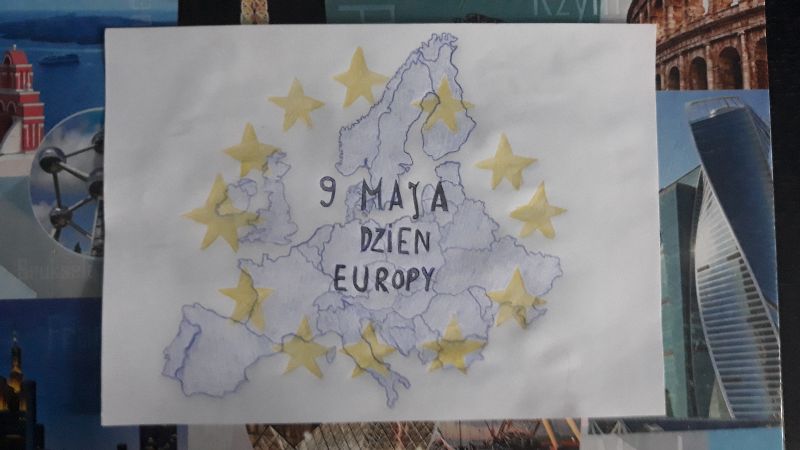 9 MAJA
DZIEN
EUROPY